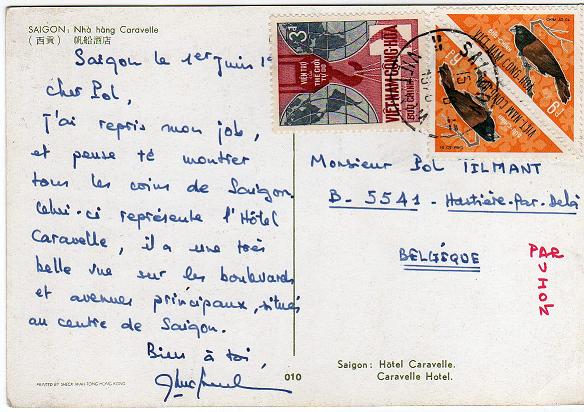 SAIGON: Nhà hàng Caravelle
(西貢) 帆船酒店
Saigon le 1er Juin
cher Pol,
J'ai repris mon job,
et pense te montrer
tous les coins de Saigon.
Celui-ci représente l'Hôtel
Caravelle, il a une très
belle vue sur les boulevards
et avenues principaux, situés
au centre de Saigon.
Bien à toi,
PRINTED BY SHECK WAH TONG HONG KONG
010
3đ
VIỆN TRỢ
THẾ GIỚI
TỰ DO
VIỆT-NAM CỘNG-HÒA
BƯU-CHÍNH
VIỆT-NAM CỘNG-HÒA
VIỆT-NAM CỘNG-HÒA
SAIGON
Monsieur Pol TILMANT
B-5541 - Hastière-Par-Delà
BELGÉQUE
PAR
AVION
Saigon: Hôtel Caravelle.
Caravelle Hotel.